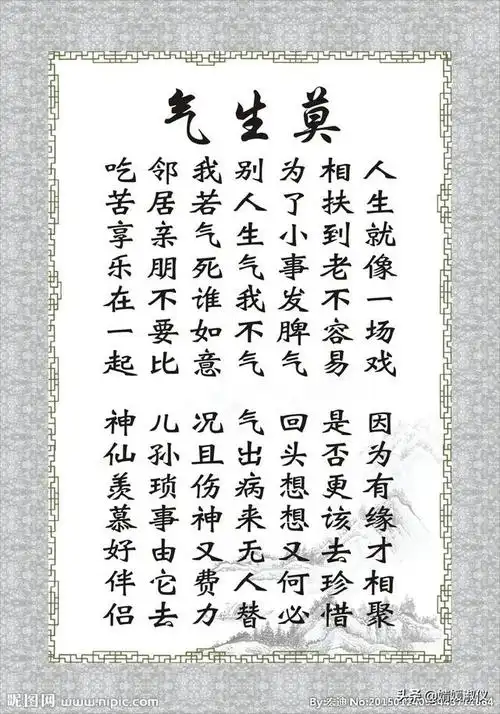 莫生气
人生就像一场戏
因为有缘才相聚
相扶到老不容易
是否更该去珍惜
为了小事发脾气
回头想想又何必
别人生气我不气
气出病来无人替
我若气死谁如意
况且伤神又费力
邻居亲朋不要比
儿孙琐事由它去
吃苦享乐在一起
神仙羡慕好伴侣
昵图网 www.nipic.com
By:宏迪
头条